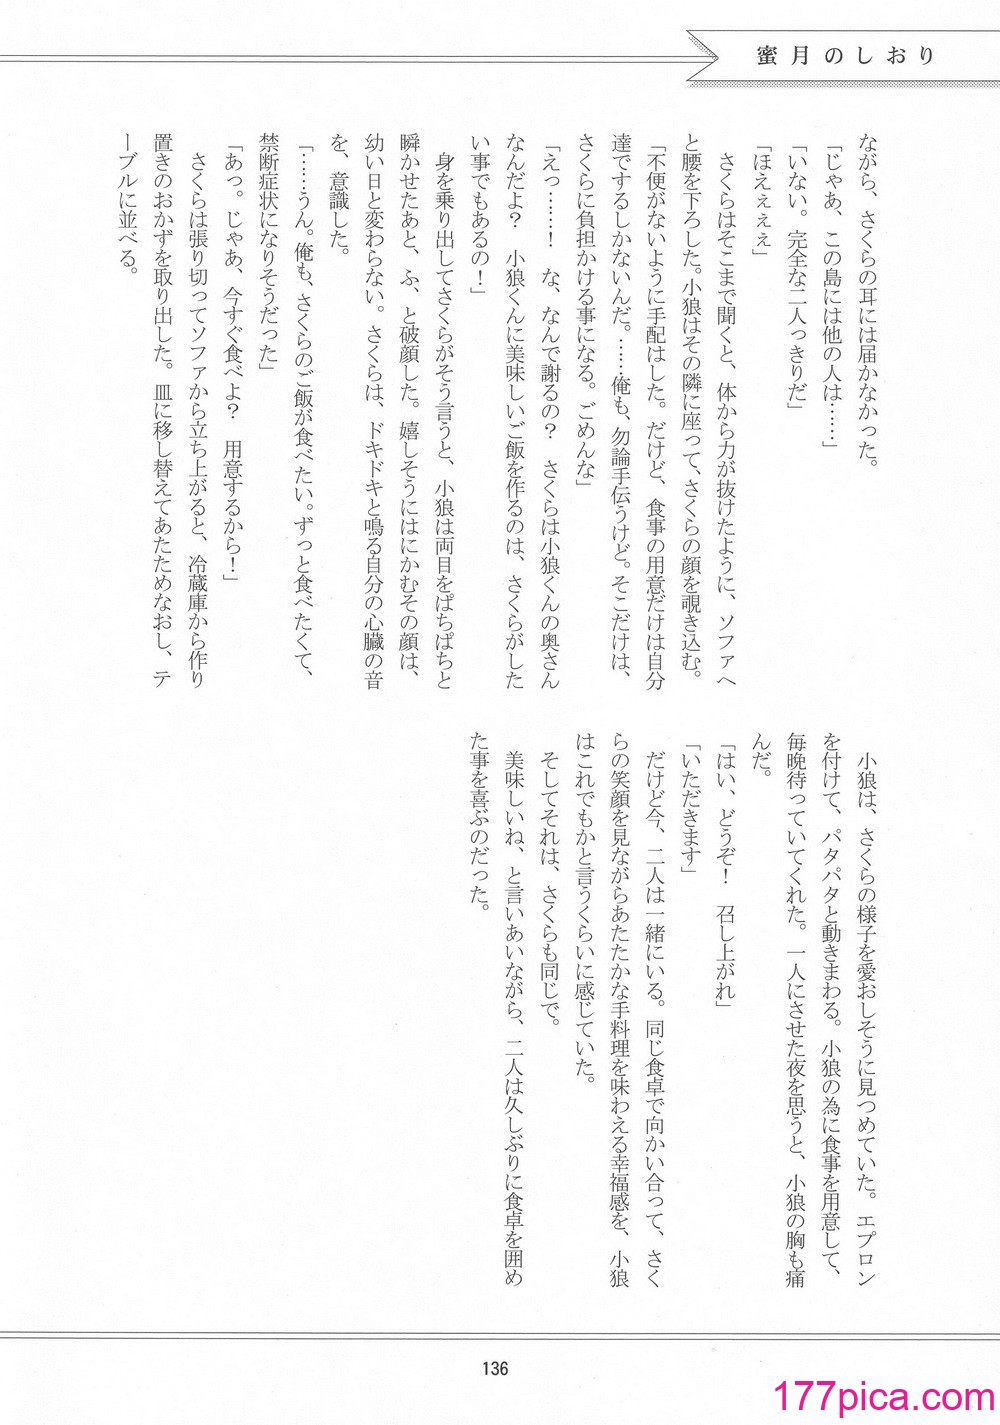 蜜月のしおり
ながら、さくらの耳には届かなかった。
「じゃあ、この島には他の人は……」
「いない。完全な二人っきりだ」
「ほえぇぇぇ」
さくらはそこまで聞くと、体から力が抜けたように、ソファへ
と腰を下ろした。小狼はその隣に座って、さくらの顔を覗き込む。
「不便がないように手配はした。だけど、食事の用意だけは自分
達でするしかないんだ。……俺も、勿論手伝うけど。そこだけは、
さくらに負担かける事になる。ごめんな」
「えっ………！　な、なんで謝るの？　さくらは小狼くんの奥さん
なんだよ？　小狼くんに美味しいご飯を作るのは、さくらがした
い事でもあるの！」
身を乗り出してさくらがそう言うと、小狼は両目をぱちぱちと
瞬かせたあと、ふ、と破顔した。嬉しそうにはにかむその顔は、
幼い日と変わらない。さくらは、ドキドキと鳴る自分の心臓の音
を、意識した。
「……うん。俺も、さくらのご飯が食べたい。ずっと食べたくて、
禁断症状になりそうだった」
「あっ。じゃあ、今すぐ食べよ？　用意するから！」
さくらは張り切ってソファから立ち上がると、冷蔵庫から作り
置きのおかずを取り出した。皿に移し替えてあたためなおし、テ
ーブルに並べる。
小狼は、さくらの様子を愛おしそうに見つめていた。エプロン
を付けて、パタパタと動きまわる。小狼の為に食事を用意して、
毎晩待っていてくれた。一人にさせた夜を思うと、小狼の胸も痛
んだ。
「はい、どうぞ！　召し上がれ」
「いただきます」
だけど今、二人は一緒にいる。同じ食卓で向かい合って、さく
らの笑顔を見ながらあたたかな手料理を味わえる幸福感を、小狼
はこれでもかと言うくらいに感じていた。
そしてそれは、さくらも同じで。
美味しいね、と言いあいながら、二人は久しぶりに食卓を囲め
た事を喜ぶのだった。
136
177pica.com